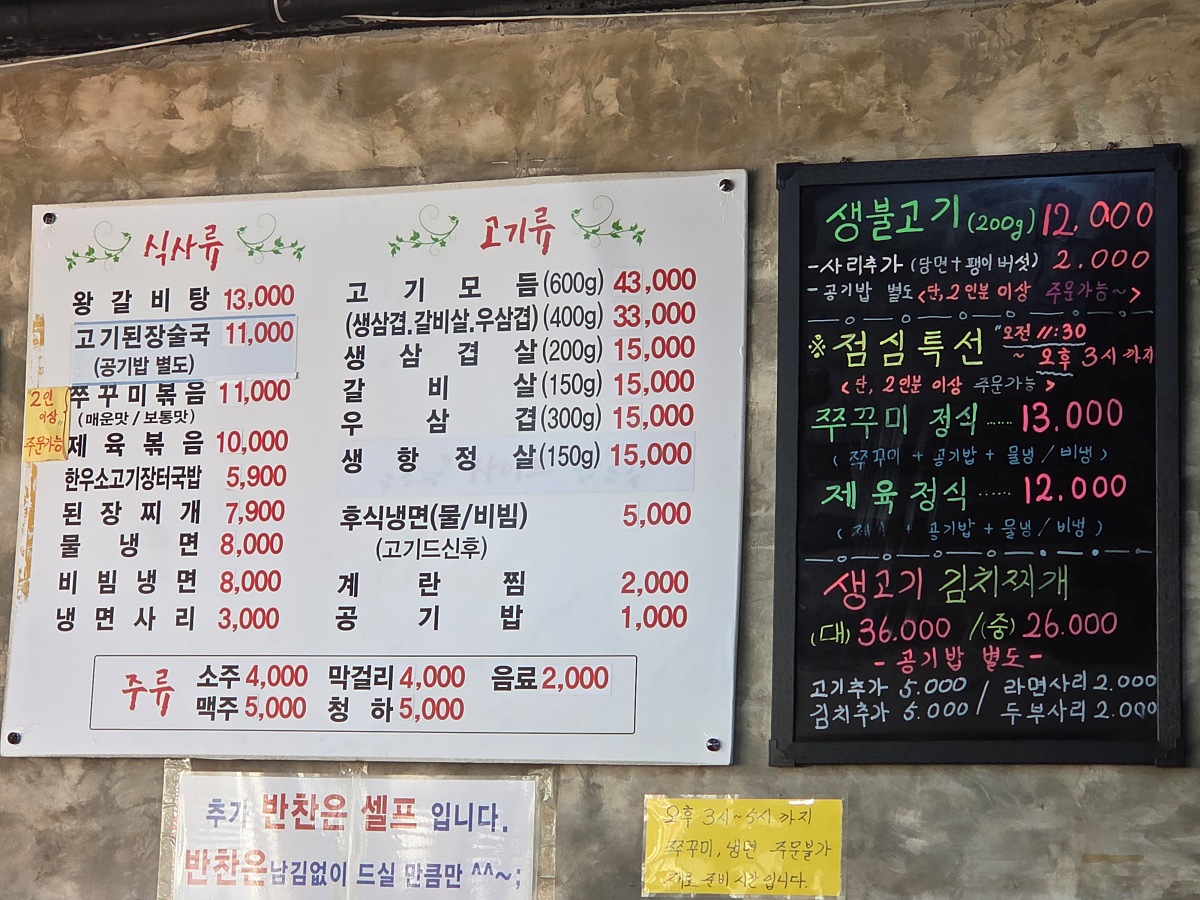 식사류
왕갈비탕 13,000
고기된장술국 11,000
(공기밥 별도)
쭈꾸미볶음 11,000
(매운맛/보통맛)
2인
이상
주문가능
제육볶음 10,000
한우소고기장터국밥 5,900
된장찌개 7,900
물냉면 8,000
비빔냉면 8,000
냉면사리 3,000
고기류
고기모듬(600g) 43,000
(생삼겹.갈비살.우삼겹)(400g) 33,000
생삼겹살(200g) 15,000
갈비살(150g) 15,000
우삼겹(300g) 15,000
생항정살(150g) 15,000
후식냉면(물/비빔) 5,000
(고기드신후)
계란찜 2,000
공기밥 1,000
주류
소주 4,000 막걸리 4,000 음료 2,000
맥주 5,000 청하 5,000
생불고기(200g) 12.000
-사리추가 (당면+팽이버섯) 2.000
-공기밥 별도 <단, 2인분 이상 주문가능~>
※점심특선 "오전 11:30
~ 오후 3시까지
<단, 2인분 이상 주문가능>
쭈꾸미 정식 ...... 13.000
(쭈꾸미 + 공기밥 + 물냉/비냉)
제육정식 ...... 12.000
( + 공기밥 + 물냉/비냉)
생고기 김치찌개
(대) 36.000 /(중) 26.000
-공기밥 별도-
고기추가 5.000 / 라면사리 2.000
김치추가 5.000 / 두부사리 2.000
추가 반찬은 셀프 입니다.
반찬은 남김없이 드실 만큼만 ^^~;
오후 3시~5시까지
쭈꾸미, 냉면 주문불가
재료 준비시간입니다.